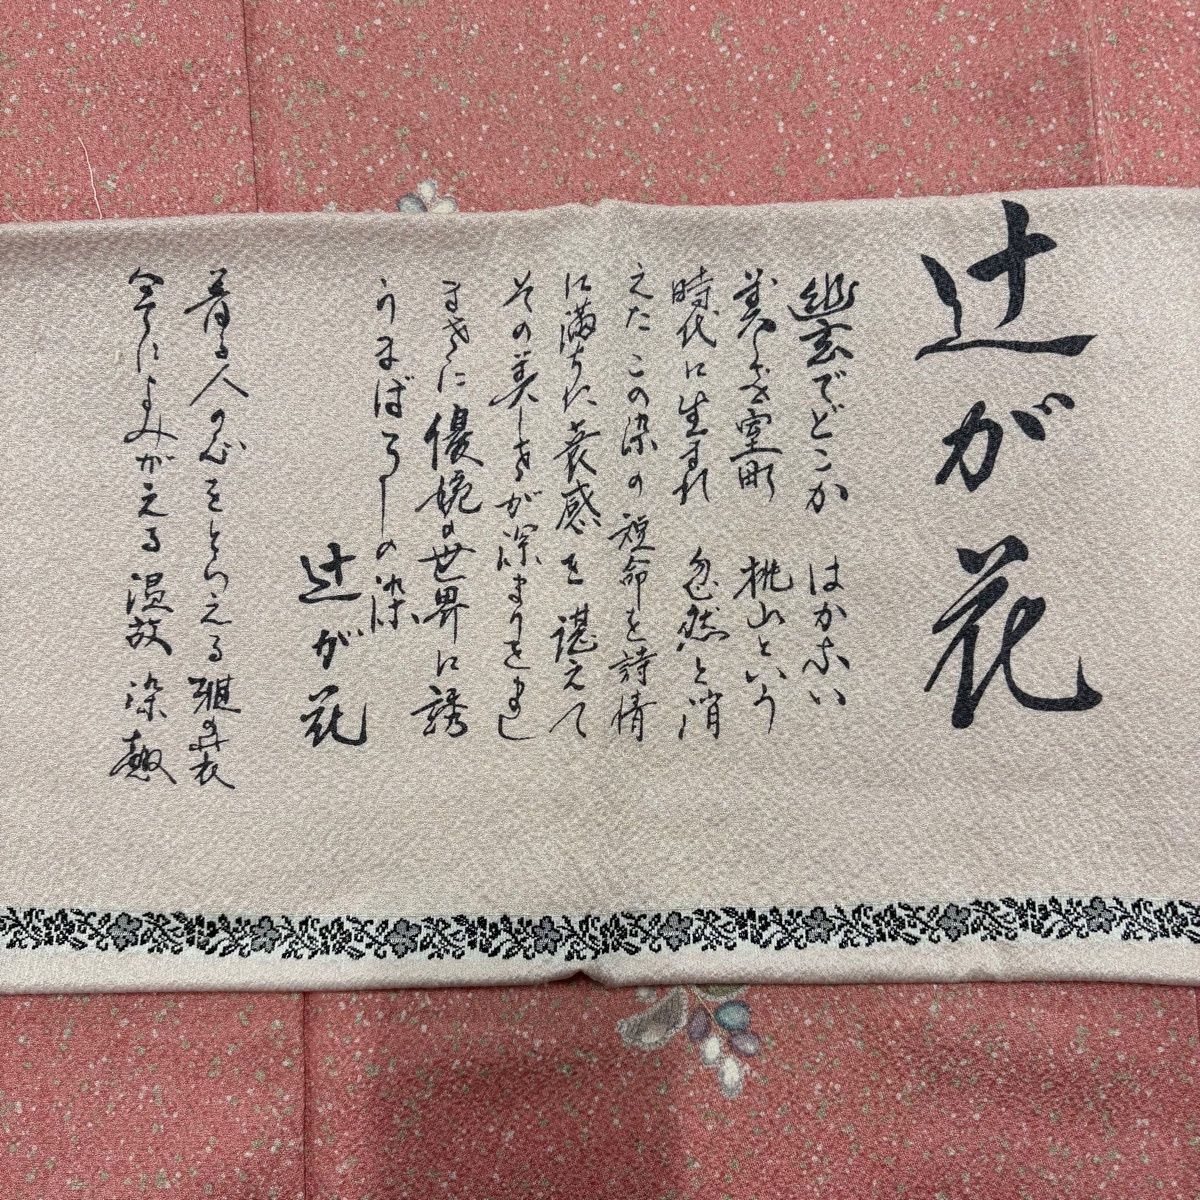 辻が花
幽玄でどこか はかない
美しさ室町 桃山という
時代に生まれ 忽然と消
えた この染の 短命を詩情
に満ちた哀感を 湛えて
その美しさが深まりをまし
まさに優婉の世界に誘
うまぼろしの染
辻が花
着る人の心をとらえる雅の衣
今によみがえる 温故 染趣